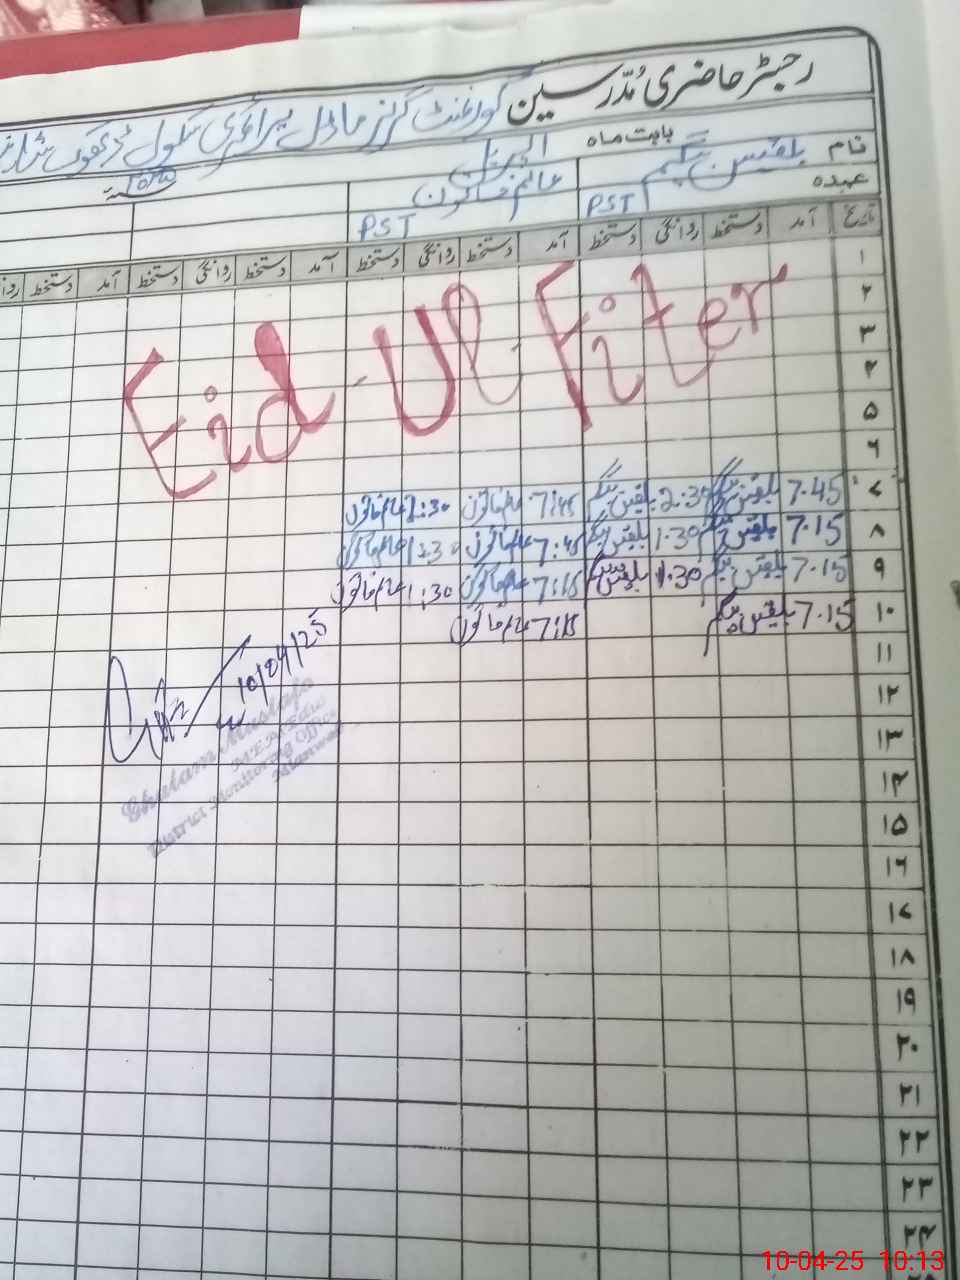 رجسٹر حاضری مُدّرسین گورنمنٹ گرلز ماڈل پرائمری سکول
بابت ماہ اپریل 2025
نام بلقیس بیگم عالم خاتون
عہدہ PST PST
تاریخ آمد دستخط روانگی دستخط آمد دستخط روانگی دستخط آمد دستخط روانگی دستخط آمد دستخط
Eid-Ul-Fiter
۱
۲
۳
۴
۵
۶
۷ 7.45 بلقیس بیگم 2.30 بلقیس بیگم 7:45 عالم خاتون 2:30 عالم خاتون
۸ 7.15 بلقیس بیگم 1.30 بلقیس بیگم 7:45 عالم خاتون 1:30 عالم خاتون
۹ 7.15 بلقیس بیگم 1.30 بلقیس بیگم 7:15 عالم خاتون 1:30 عالم خاتون
۱۰ 7.15 بلقیس بیگم 7:15 عالم خاتون
۱۱
۱۲
۱۳
۱۴
۱۵
۱۶
۱۷
۱۸
۱۹
۲۰
۲۱
۲۲
۲۳
۲۴
10/04/25
Ghulam Mustafa
MEA
District Monitoring Office
Mianwali
10-04-25 10:13